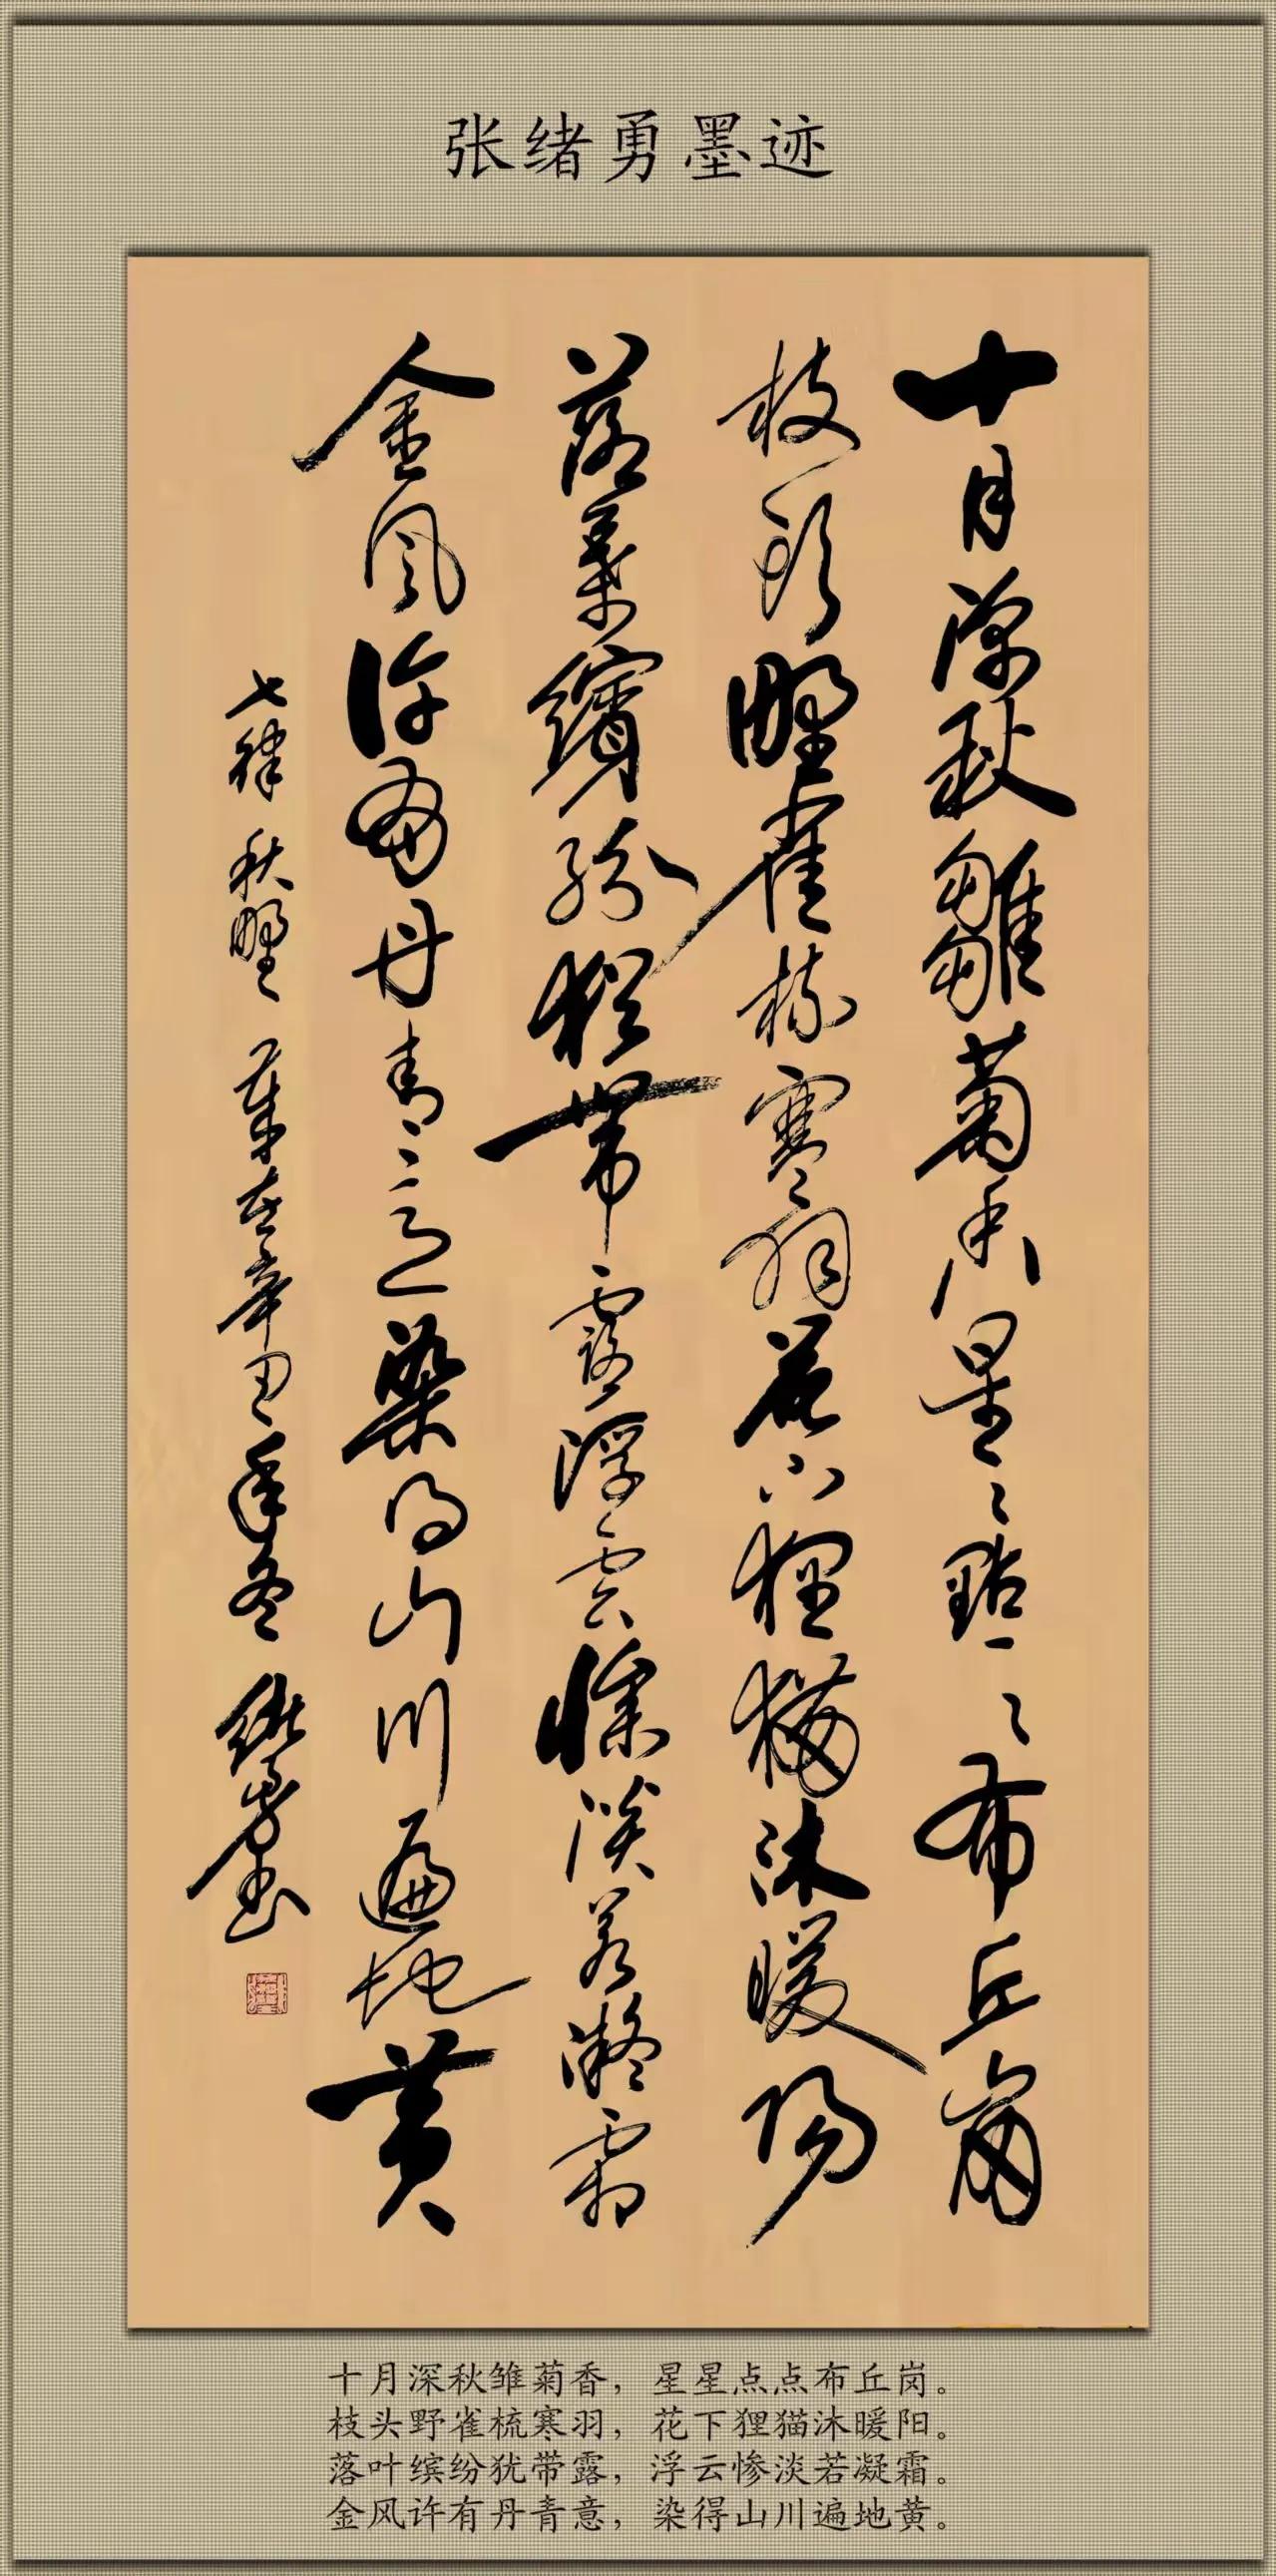 张绪勇墨迹
十月深秋雛菊香星星點點布丘崗
枝頭野雀梳寒羽花下狸猫沐暖陽
落葉繽紛猶带露浮雲惨淡若凝霜
金風許有丹青意染得山川遍地黄
七律 秋野 草在辛丑年冬 绪勇书
十月深秋雏菊香，星星点点布丘岗。
枝头野雀梳寒羽，花下狸猫沐暖阳。
落叶缤纷犹带露，浮云惨淡若凝霜。
金风许有丹青意，染得山川遍地黄。